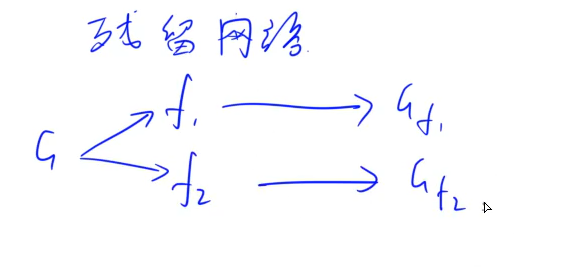 残留网络
f₁ → G_f₁
G
f₂ → G_f₂